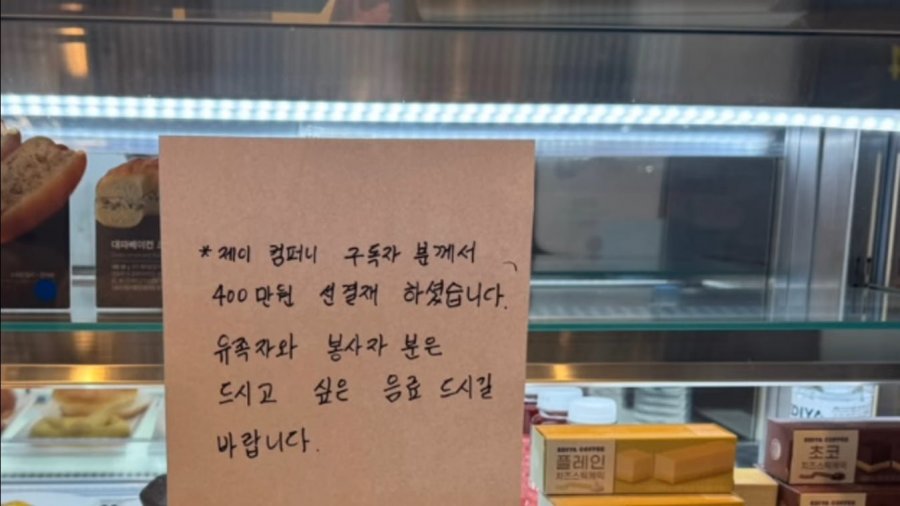 * 제이 컴퍼니 구독자 분께서
400만원 선결재 하셨습니다.
유족자와 봉사자 분은
드시고 싶은 음료 드시길
바랍니다.
대파베이컨
EDIYA COFFEE
플레인
치즈스틱케익
EDIYA COFFEE
초코
치즈스틱케익
EDIYA COFFEE